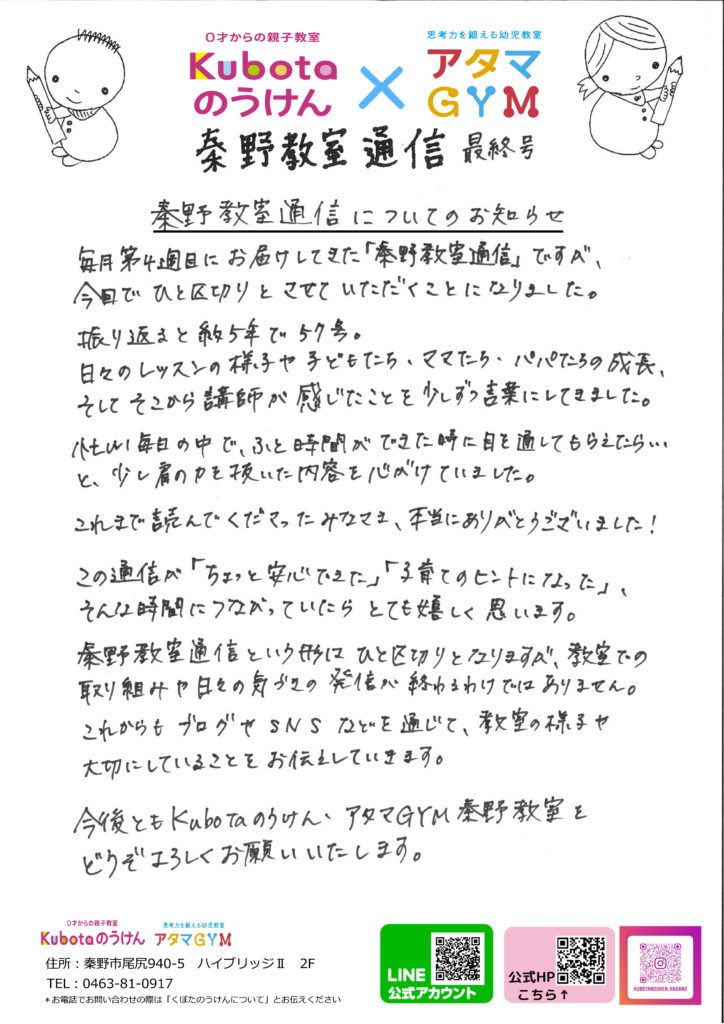 0才からの親子教室
Kubota
のうけん
×
思考力を鍛える幼児教室
アタマ
GYM
秦野教室通信 最終号
秦野教室通信についてのお知らせ
毎月第4週目にお届けしてきた「秦野教室通信」ですが、
今回でひと区切りとさせていただくことになりました。
振り返ると約5年で57号。
日々のレッスンの様子や子どもたち・ママたち・パパたちの成長、
そしてそこから講師が感じたことを少しずつ言葉にしてきました。
忙しい毎日の中で、ふと時間ができた時に目を通してもらえたらいい
と、少し肩の力を抜いた内容を心がけていました。
これまで読んでくださったみなさま、本当にありがとうございました！
この通信が「ちょっと安心できた」「子育てのヒントになった」、
そんな時間につながっていたらとても嬉しく思います。
秦野教室通信という形はひと区切りとなりますが、教室での
取り組みや日々の気づきの発信が終わるわけではありません。
これからもブログやSNSなどを通じて、教室の様子や
大切にしていることをお伝えしていきます。
今後ともKubotaのうけん・アタマGYM秦野教室を
どうぞよろしくお願いいたします。
0才からの親子教室
Kubotaのうけん
思考力を鍛える幼児教室
アタマGYM
住所：秦野市尾尻940-5 ハイブリッジⅡ 2F
TEL：0463-81-0917
＊お電話でお問い合わせの際は「くぼたのうけんについて」とお伝えください
LINE
公式アカウント
公式HP
こちら↑
KUBOTANOUKEN_HADANO